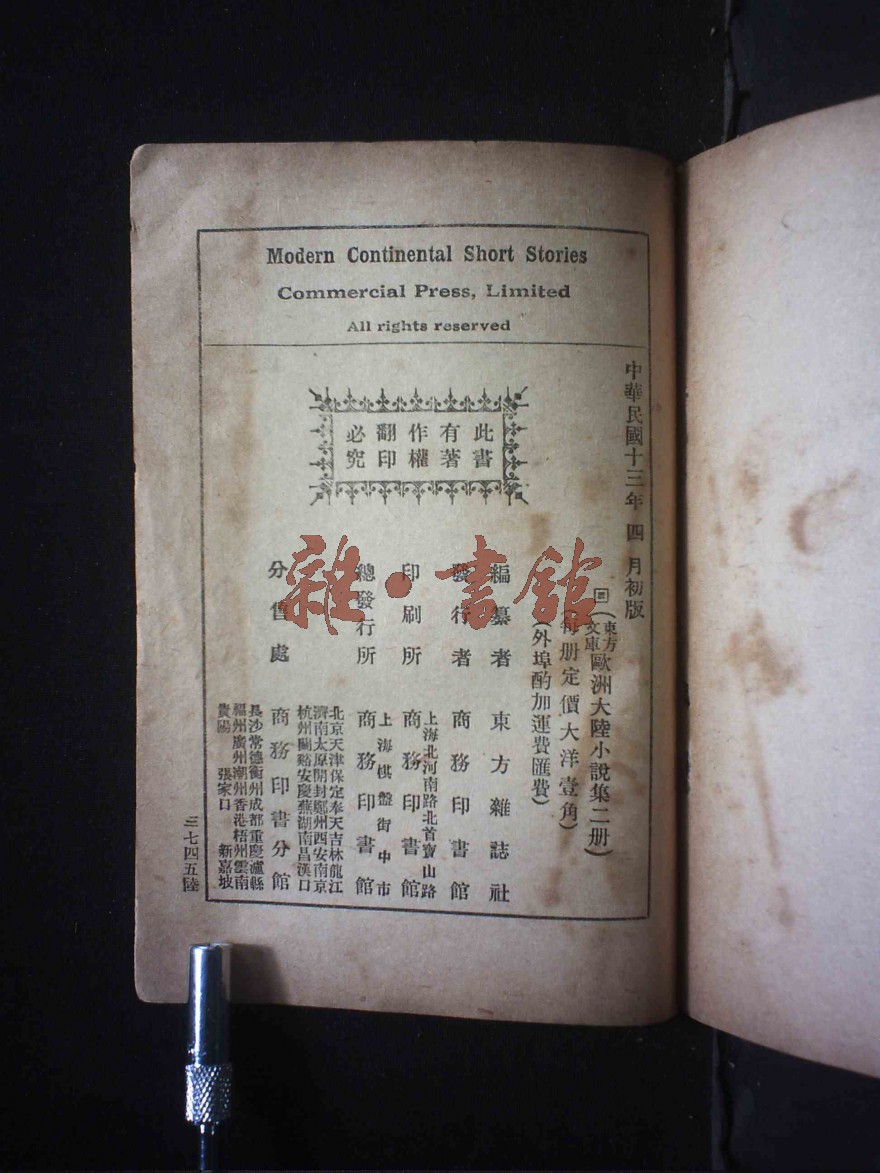 Modern Continental Short Stories
Commercial Press, Limited
All rights reserved
此書
有著
作權
翻印
必究
中華民國十三年四月初版
(東方文庫歐洲大陸小說集二册)
(每册定價大洋壹角)
(外埠酌加運費匯費)
編纂者 東方雜誌社
發行者 商務印書館
上海北河南路北首寶山路
印刷所 商務印書館
上海棋盤街中市
總發行所 商務印書館
北京天津保定奉天吉林龍江
濟南太原開封鄭州西安南京
杭州蘭谿安慶蕪湖南昌漢口
分售處 商務印書分館
長沙常德衡州成都重慶瀘縣
福州廣州潮州香港梧州雲南
貴陽 張家口 新嘉坡
三七四五陸
雜·書館